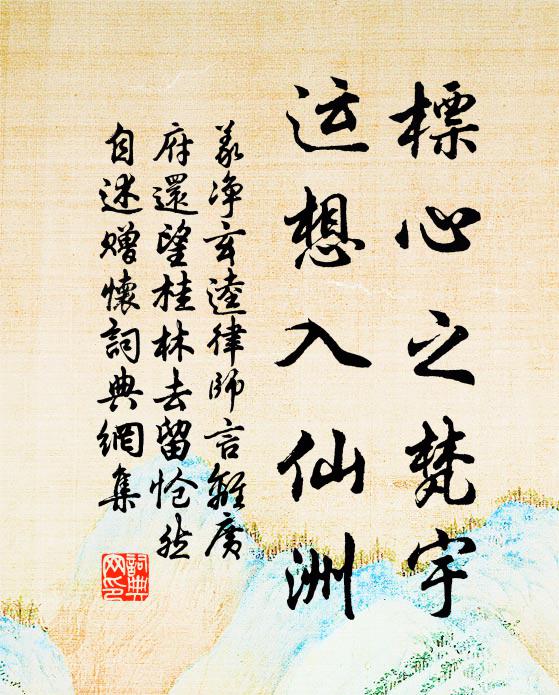 標心之梵宇
运想入仙洲
義净玄逵律師言離廣
府還望桂林去留愴然
自述贈懷詞典網集
詞典
网印